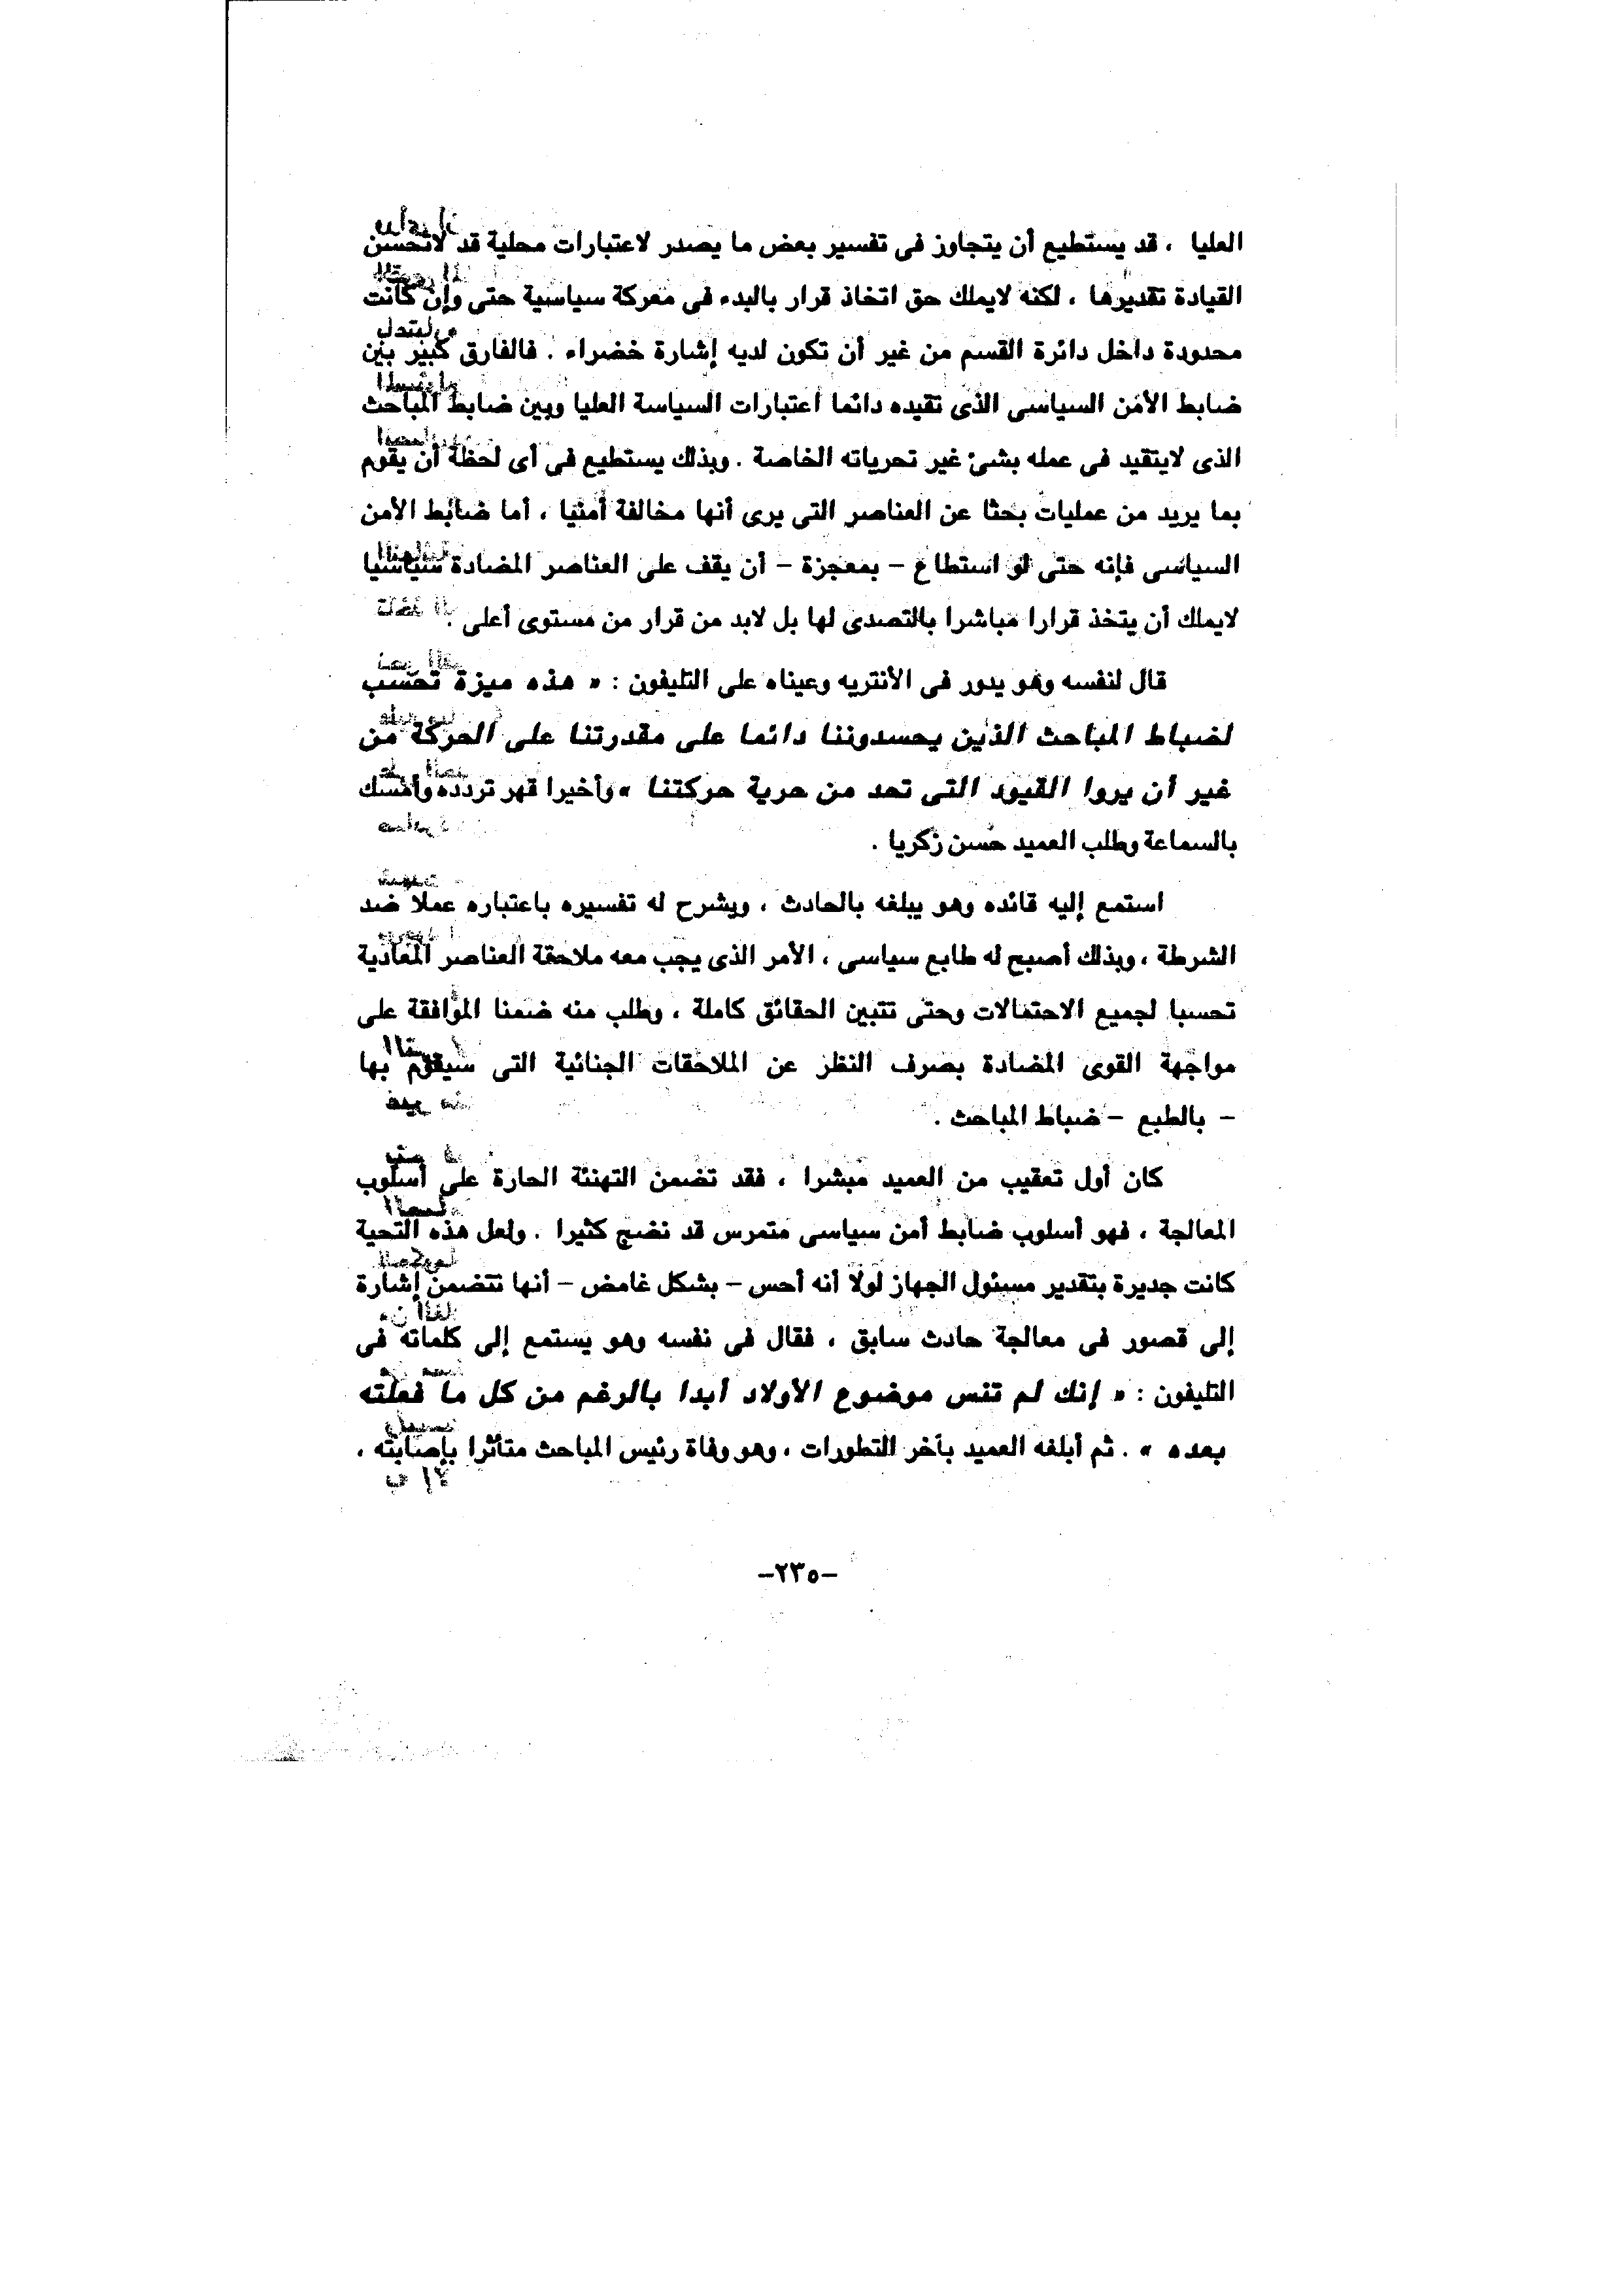 العليا ، قد يستطيع أن يتجاوز فى تفسير بعض ما يصدر لاعتبارات محلية قد لاتحسن
القيادة تقديرها ، لكنه لايملك حق اتخاذ قرار بالبدء فى معركة سياسية حتى وإن كانت
محدودة داخل دائرة القسم من غير أن تكون لديه إشارة خضراء . فالفارق كبير بين
ضابط الأمن السياسى الذى تقيده دائما اعتبارات السياسة العليا وبين ضابط المباحث
الذى لايتقيد فى عمله بشئ غير تحرياته الخاصة . وبذلك يستطيع فى أى لحظة أن يقوم
بما يريد من عمليات بحثا عن العناصر التى يرى أنها مخالفة أمنيا ، أما ضابط الأمن
السياسى فإنه حتى لو استطاع – بمعجزة – أن يقف على العناصر المضادة سياسيا
لايملك أن يتخذ قرارا مباشرا بالتصدى لها بل لابد من قرار من مستوى أعلى .
قال لنفسه وهو يدور فى الأنتريه وعيناه على التليفون : « هذه ميزة تحسب
لضباط المباحث الذين يحسدوننا دائما على مقدرتنا على الحركة من
غير أن يروا القيود التى تحد من حرية حركتنا » وأخيرا قهر تردده وأمسك
بالسماعة وطلب العميد حسن زكريا .
استمع إليه قائده وهو يبلغه بالحادث ، ويشرح له تفسيره باعتباره عملا ضد
الشرطة ، وبذلك أصبح له طابع سياسى ، الأمر الذى يجب معه ملاحقة العناصر المعادية
تحسبا لجميع الاحتمالات وحتى تتبين الحقائق كاملة ، وطلب منه ضمنا الموافقة على
مواجهة القوى المضادة بصرف النظر عن الملاحقات الجنائية التى سيقوم بها
– بالطبع – ضباط المباحث .
كان أول تعقيب من العميد مبشرا ، فقد تضمن التهنئة الحارة على أسلوب
المعالجة ، فهو أسلوب ضابط أمن سياسى متمرس قد نضج كثيرا . ولعل هذه التحية
كانت جديرة بتقدير مسئول الجهاز لولا أنه أحس – بشكل غامض – أنها تتضمن إشارة
إلى قصور فى معالجة حادث سابق ، فقال فى نفسه وهو يستمع إلى كلماته فى
التليفون : « إنك لم تنس موضوع الأولاد أبدا بالرغم من كل ما فعلته
بعده » . ثم أبلغه العميد بآخر التطورات ، وهو وفاة رئيس المباحث متأثرا بإصابته ،
–٢٣٥–